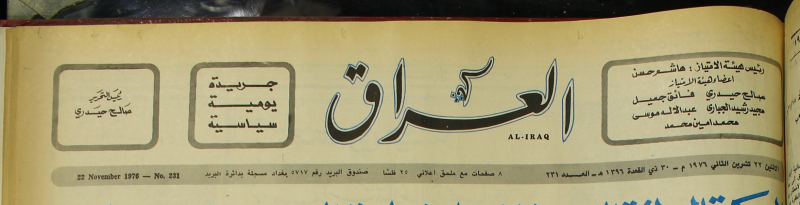 رئيس هيئة الامتياز : هاشم حسن
اعضاء هيئة الامتياز
صالح حيدري فائق جميل
مجيد رشيد الجباري عبدالاله موسى
محمد امين محمد
العراق
AL-IRAQ
جريدة
يومية
سياسية
رئيس التحرير
صالح حيدري
الاثنين ٢٢ تشرين الثاني ١٩٧٦ م - ٣٠ ذي القعدة ١٣٩٦ هـ - العدد ٢٣١
٨ صفحات مع ملحق اعلاني ٢٥ فلسا
صندوق البريد رقم ٥٧١٧ بغداد مسجلة بدائرة البريد
22 November 1976 — No. 231